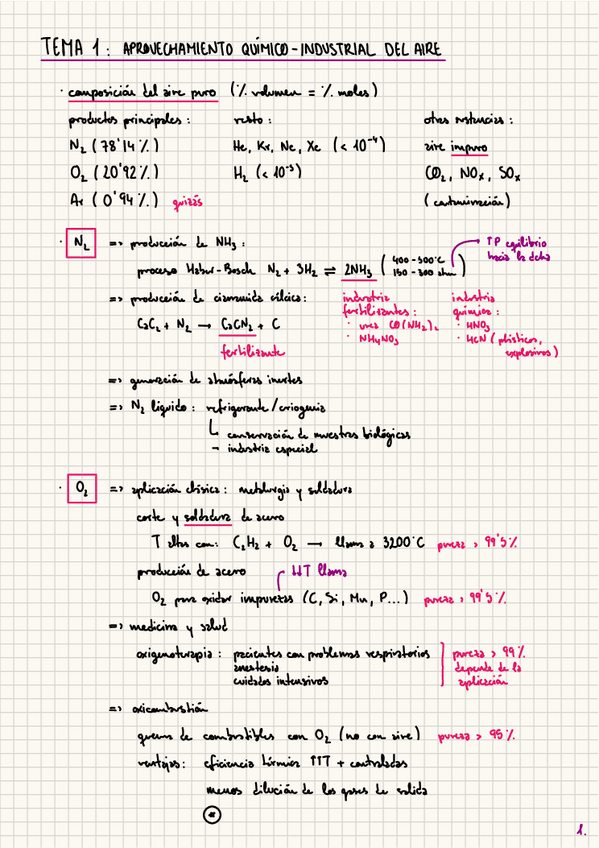 TEMA 1: APROVECHAMIENTO QUÍMICO-INDUSTRIAL DEL AIRE
· composición del aire puro (% volumen = % moles)
productos principales: resto: otras sustancias:
N₂ (78'14%) He, Kr, Ne, Xe (< 10⁻⁴) aire impuro
O₂ (20'92%) H₂ (< 10⁻⁵) CO₂, NOₓ, SOₓ
Ar (0'94%) quizás (contaminación)
· N₂ => producción de NH₃: ↑P equilibrio
hacia la dcha
proceso Haber-Bosch N₂ + 3H₂ ⇌ 2NH₃ (400-500°C
150-300 atm)
=> producción de cianamida cálcica: industria industria
fertilizantes: química:
CaC₂ + N₂ → CaCN₂ + C · urea CO(NH₂)₂ · HNO₃
· NH₄NO₃ · HCN (plásticos,
fertilizante explosivos)
=> generación de atmósferas inertes
=> N₂ líquido: refrigerante/criogenia
conservación de muestras biológicas
- industria espacial
· O₂ => aplicación clásica: metalurgia y soldadura
corte y soldadura de acero
T altas con: C₂H₂ + O₂ → llama a 3200°C pureza > 99'5%
producción de acero ↓↓T llama
O₂ para oxidar impurezas (C, Si, Mn, P...) pureza > 99'5%
=> medicina y salud
oxigenoterapia: pacientes con problemas respiratorios pureza > 99%
anestesia depende de la
cuidados intensivos aplicación
=> oxicombustión
quema de combustibles con O₂ (no con aire) pureza > 95%
ventajas: eficiencia térmica ↑↑T + controladas
menos dilución de los gases de salida
1.